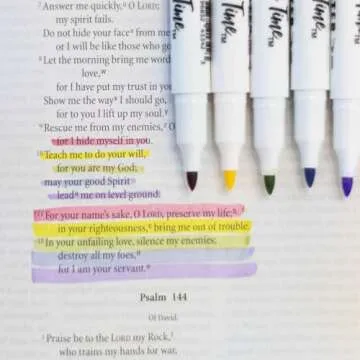 7 Answer me quickly,u O LORD;
my spirit fails.
Do not hide your face from me
or I will be like those who go
8 Let the morning bring me word
love,w
for I have put my trust in you
Show me the way I should go,
for to you I lift up my soul.
9 Rescue me from my enemies, O
for I hide myself in you.
10 Teach me to do your will,
for you are my God;
may your good Spirit
lead me on level ground.
11 For your name's sake, O LORD, preserve my life;
in your righteousness, bring me out of trouble.
12 In your unfailing love, silence my enemies;
destroy all my foes,
for I am your servant.
Psalm 144
Of David.
1 Praise be to the LORD my Rock,
who trains my hands for war,
Time™
Time™
Time
Time